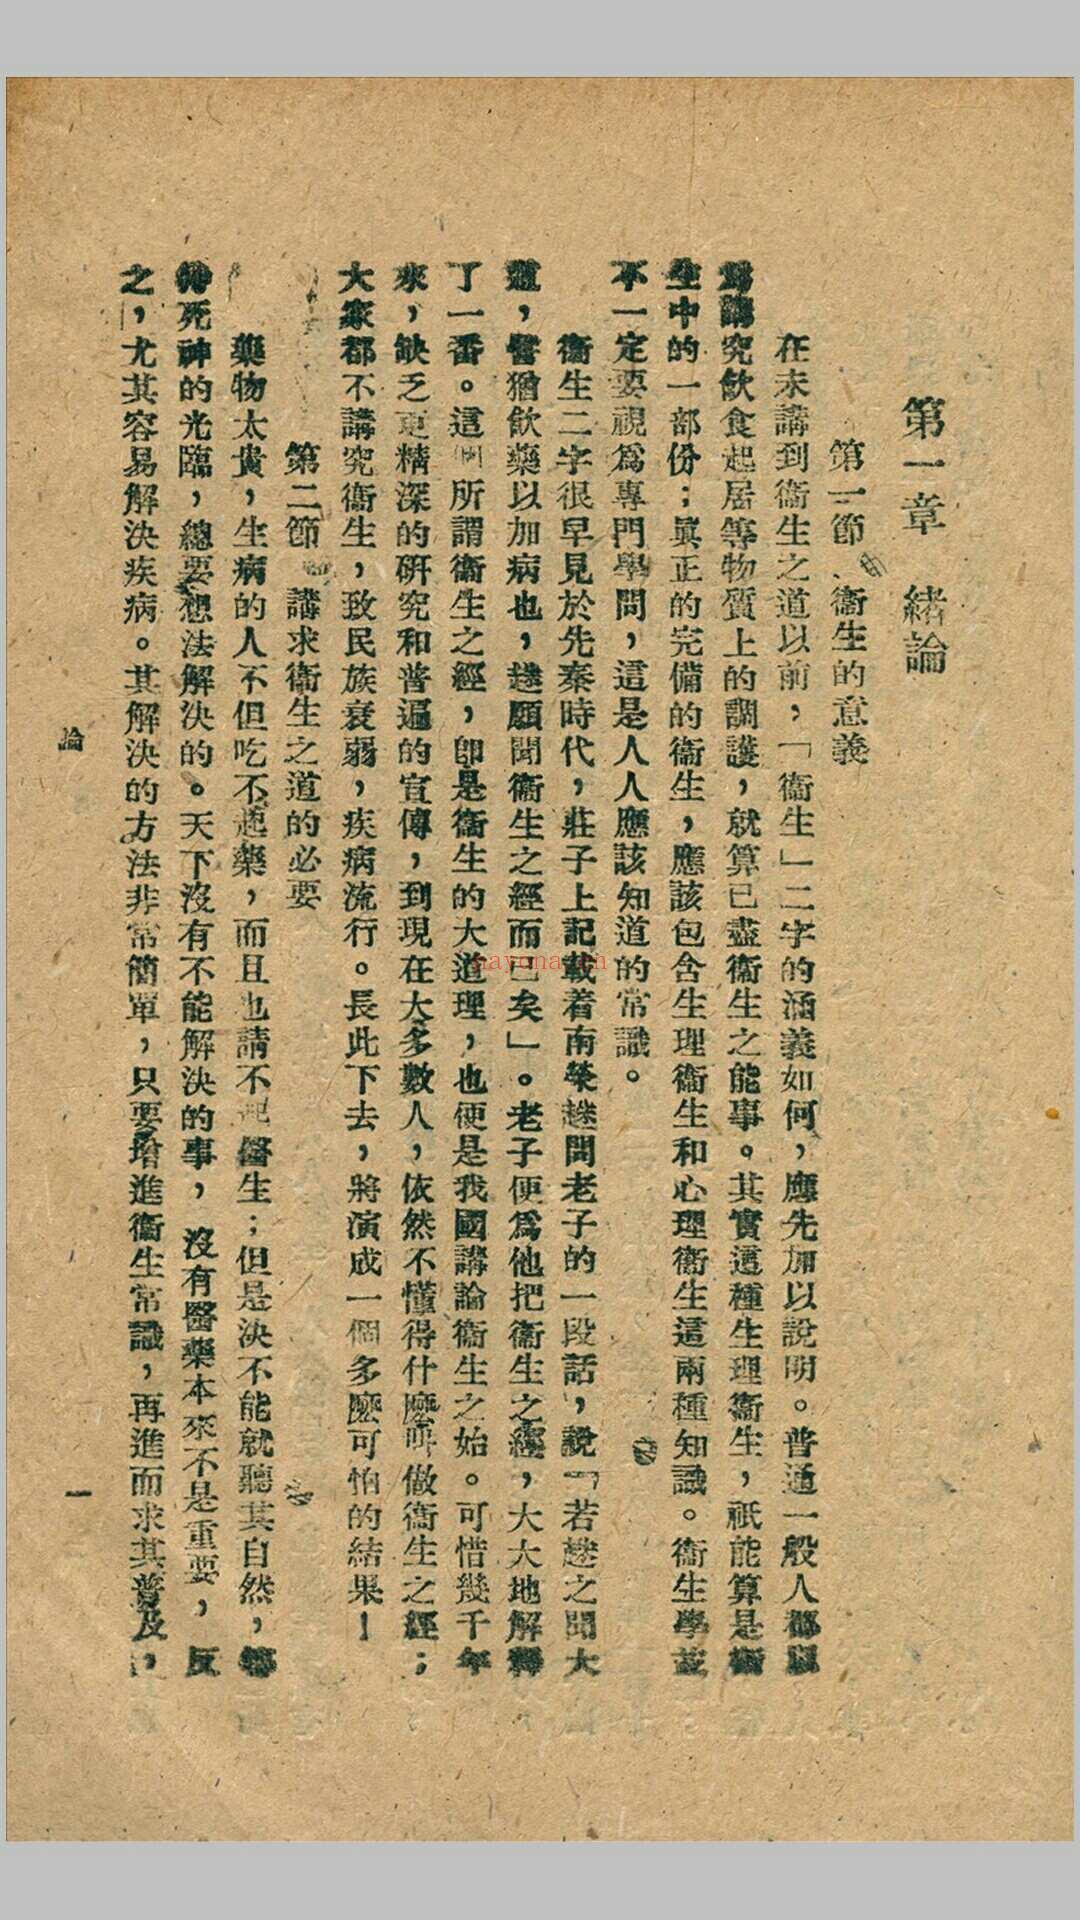 第一章　緒論
第一節　衞生的意義
在未講到衞生之道以前，「衞生」二字的涵義如何，應先加以說明。普通一般人都以
爲講究飲食起居等物質上的調護，就算已盡衞生之能事。其實這種生理衞生，祇能算是衞
生中的一部份；眞正的完備的衞生，應該包含生理衞生和心理衞生這兩種知識。衞生學並
不一定要視爲專門學問，這是人人應該知道的常識。
衞生二字很早見於先秦時代，莊子上記載着南榮趎問老子的一段話，說「若趎之聞大
道，譬猶飲藥以加病也，趎願聞衞生之經而已矣」。老子便爲他把衞生之經，大大地解釋
了一番。這個所謂衞生之經，卽是衞生的大道理，也便是我國講論衞生之始。可惜幾千年
來，缺乏更精深的硏究和普遍的宣傳，到現在大多數人，依然不懂得什麼叫做衞生之經；
大家都不講究衞生，致民族衰弱，疾病流行。長此下去，將演成一個多麼可怕的結果！
第二節　講求衞生之道的必要
藥物太貴，生病的人不但吃不起藥，而且也請不起醫生；但是決不能就聽其自然，等
待死神的光臨，總要想法解決的。天下沒有不能解決的事，沒有醫藥本來不是重要，反
之，尤其容易解決疾病。其解決的方法非常簡單，只要增進衞生常識，再進而求其普及，
論
一
nayona.cn